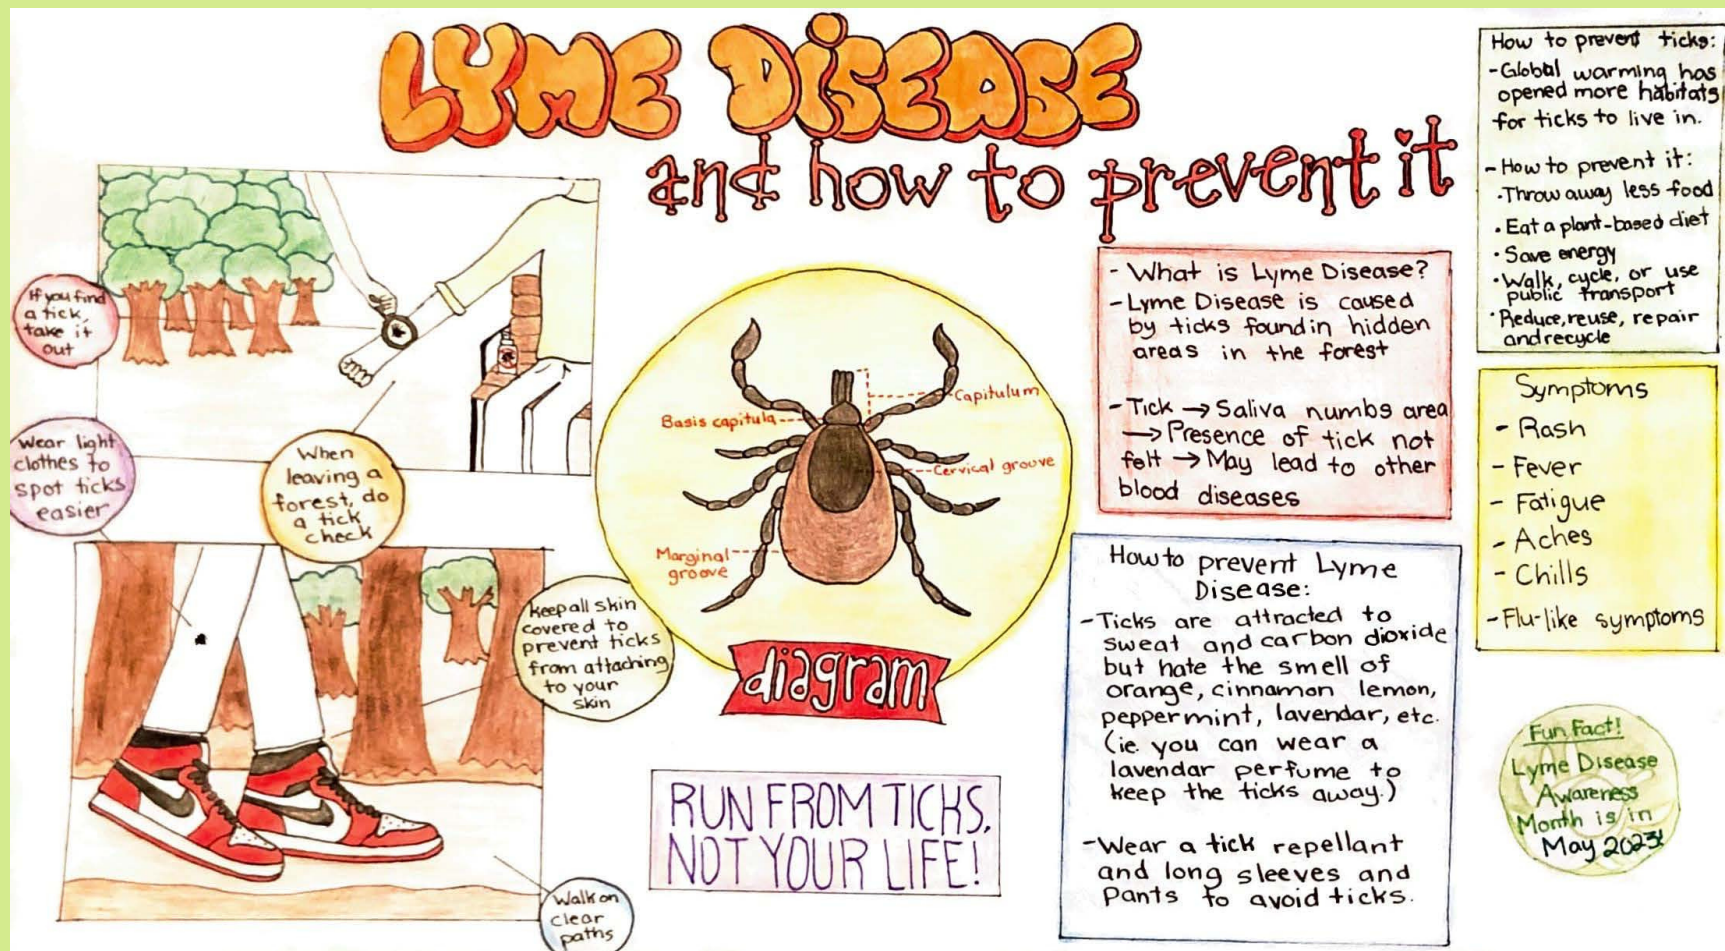 LYME DISEASE
and how to prevent it
If you find
a tick,
take it
out
Wear light
clothes to
spot ticks
easier
When
leaving a
forest, do
a tick
check
keep all skin
covered to
prevent ticks
from attaching
to your
skin
Walk on
clear
paths
Basis capitula
Capitulum
Cervical groove
Marginal
groove
diagram
RUN FROM TICKS,
NOT YOUR LIFE!
- What is Lyme Disease?
- Lyme Disease is caused
by ticks found in hidden
areas in the forest
- Tick → Saliva numbs area
→ Presence of tick not
felt → May lead to other
blood diseases
How to prevent Lyme
Disease:
- Ticks are attracted to
sweat and carbon dioxide
but hate the smell of
orange, cinnamon lemon,
peppermint, lavendar, etc.
(ie. you can wear a
lavendar perfume to
keep the ticks away.)
- Wear a tick repellant
and long sleeves and
pants to avoid ticks.
How to prevent ticks:
- Global warming has
opened more habitats
for ticks to live in.
- How to prevent it:
· Throw away less food
· Eat a plant-based diet
· Save energy
· Walk, cycle, or use
public transport
· Reduce, reuse, repair
and recycle
Symptoms
- Rash
- Fever
- Fatigue
- Aches
- Chills
- Flu-like symptoms
Fun Fact!
Lyme Disease
Awareness
Month is in
May 2023!